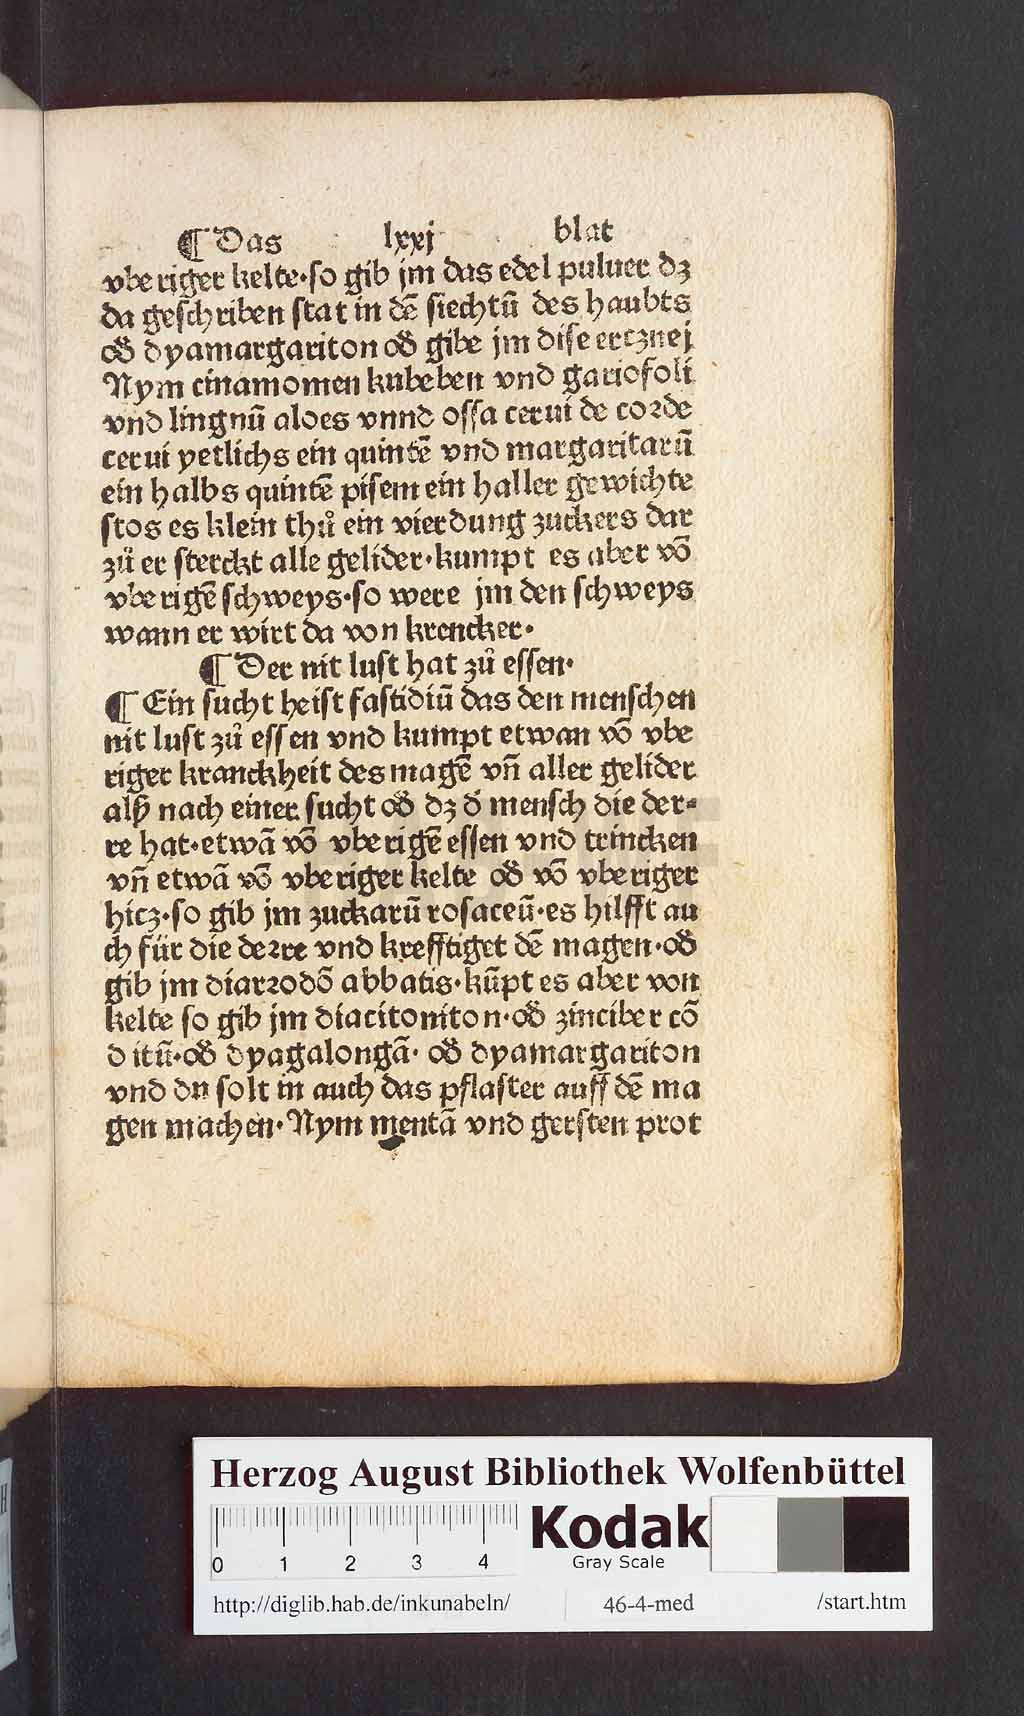 ¶ Das lxxj blat
vberiger kelte·so gib jm das edel puluer dꝫ
da geschriben stat in dē siechtū des haubts
od̄ dyamargariton od̄ gibe jm dise ertznej
Nym cinamomen kubeben vnd gariofoli
vnd lingnū aloes vnnd ossa cerui de corde
cerui yetlichs ein quintē vnd margaritarū
ein halbs quintē pisem ein haller gewichte
stos es klein thů ein vierdung zuckers dar
zů er sterckt alle gelider·kumpt es aber vō
vberigē schweys·so were jm den schweys
wann er wirt da von krencker·
¶ Der nit lust hat zů essen·
¶ Ein sucht heist fastidiū das den menschen
nit lust zů essen vnd kumpt etwan vō vbe
riger kranckheit des magē vn̄ aller gelider
alß nach einer sucht od̄ dꝫ d̄ mensch die der⸗
re hat·etwā vō vberigē essen vnd trincken
vn̄ etwā vō vberiger kelte od̄ vō vberiger
hicz·so gib jm zuckarū rosaceū·es hilfft au
ch für die derre vnd krefftiget dē magen·od̄
gib jm diarrodō abbatis·kūpt es aber von
kelte so gib jm diacitoniton·od̄ zinciber cō
ditū·od̄ dyagalongā· od̄ dyamargariton
vnd du solt in auch das pflaster auff dē ma
gen machen·Nym mentā vnd gersten prot
Herzog August Bibliothek Wolfenbüttel
0 1 2 3 4
Kodak
Gray Scale
http://diglib.hab.de/inkunabeln/ 46-4-med /start.htm